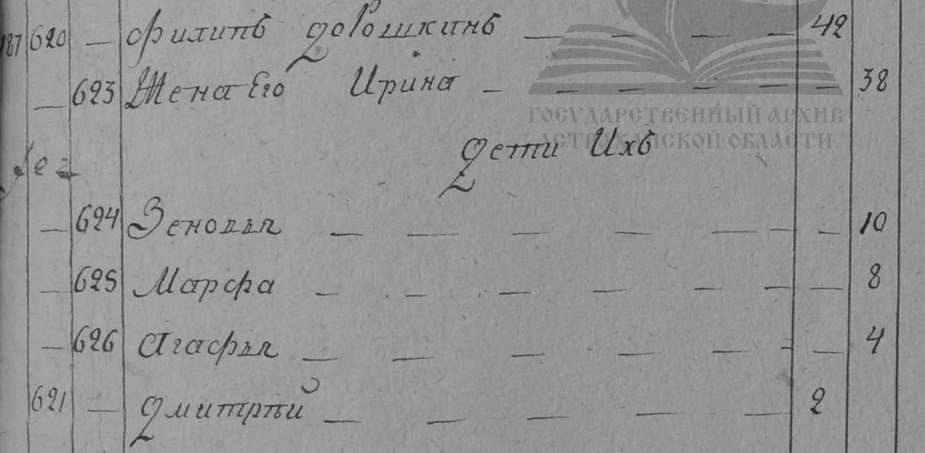 187 620 — Филипъ Дорошкинъ — — — — 42
— 623 Жена Его Ирина — — — — — 38
ГОСУДАРСТВЕННЫЙ АРХИВ
АСТРАХАНСКОЙ ОБЛАСТИ
Дети Ихъ
— 624 Зеновья — — — — — — 10
— 625 Марфа — — — — — — 8
— 626 Агафья — — — — — — 4
621 — Дмитрѣй — — — — — 2